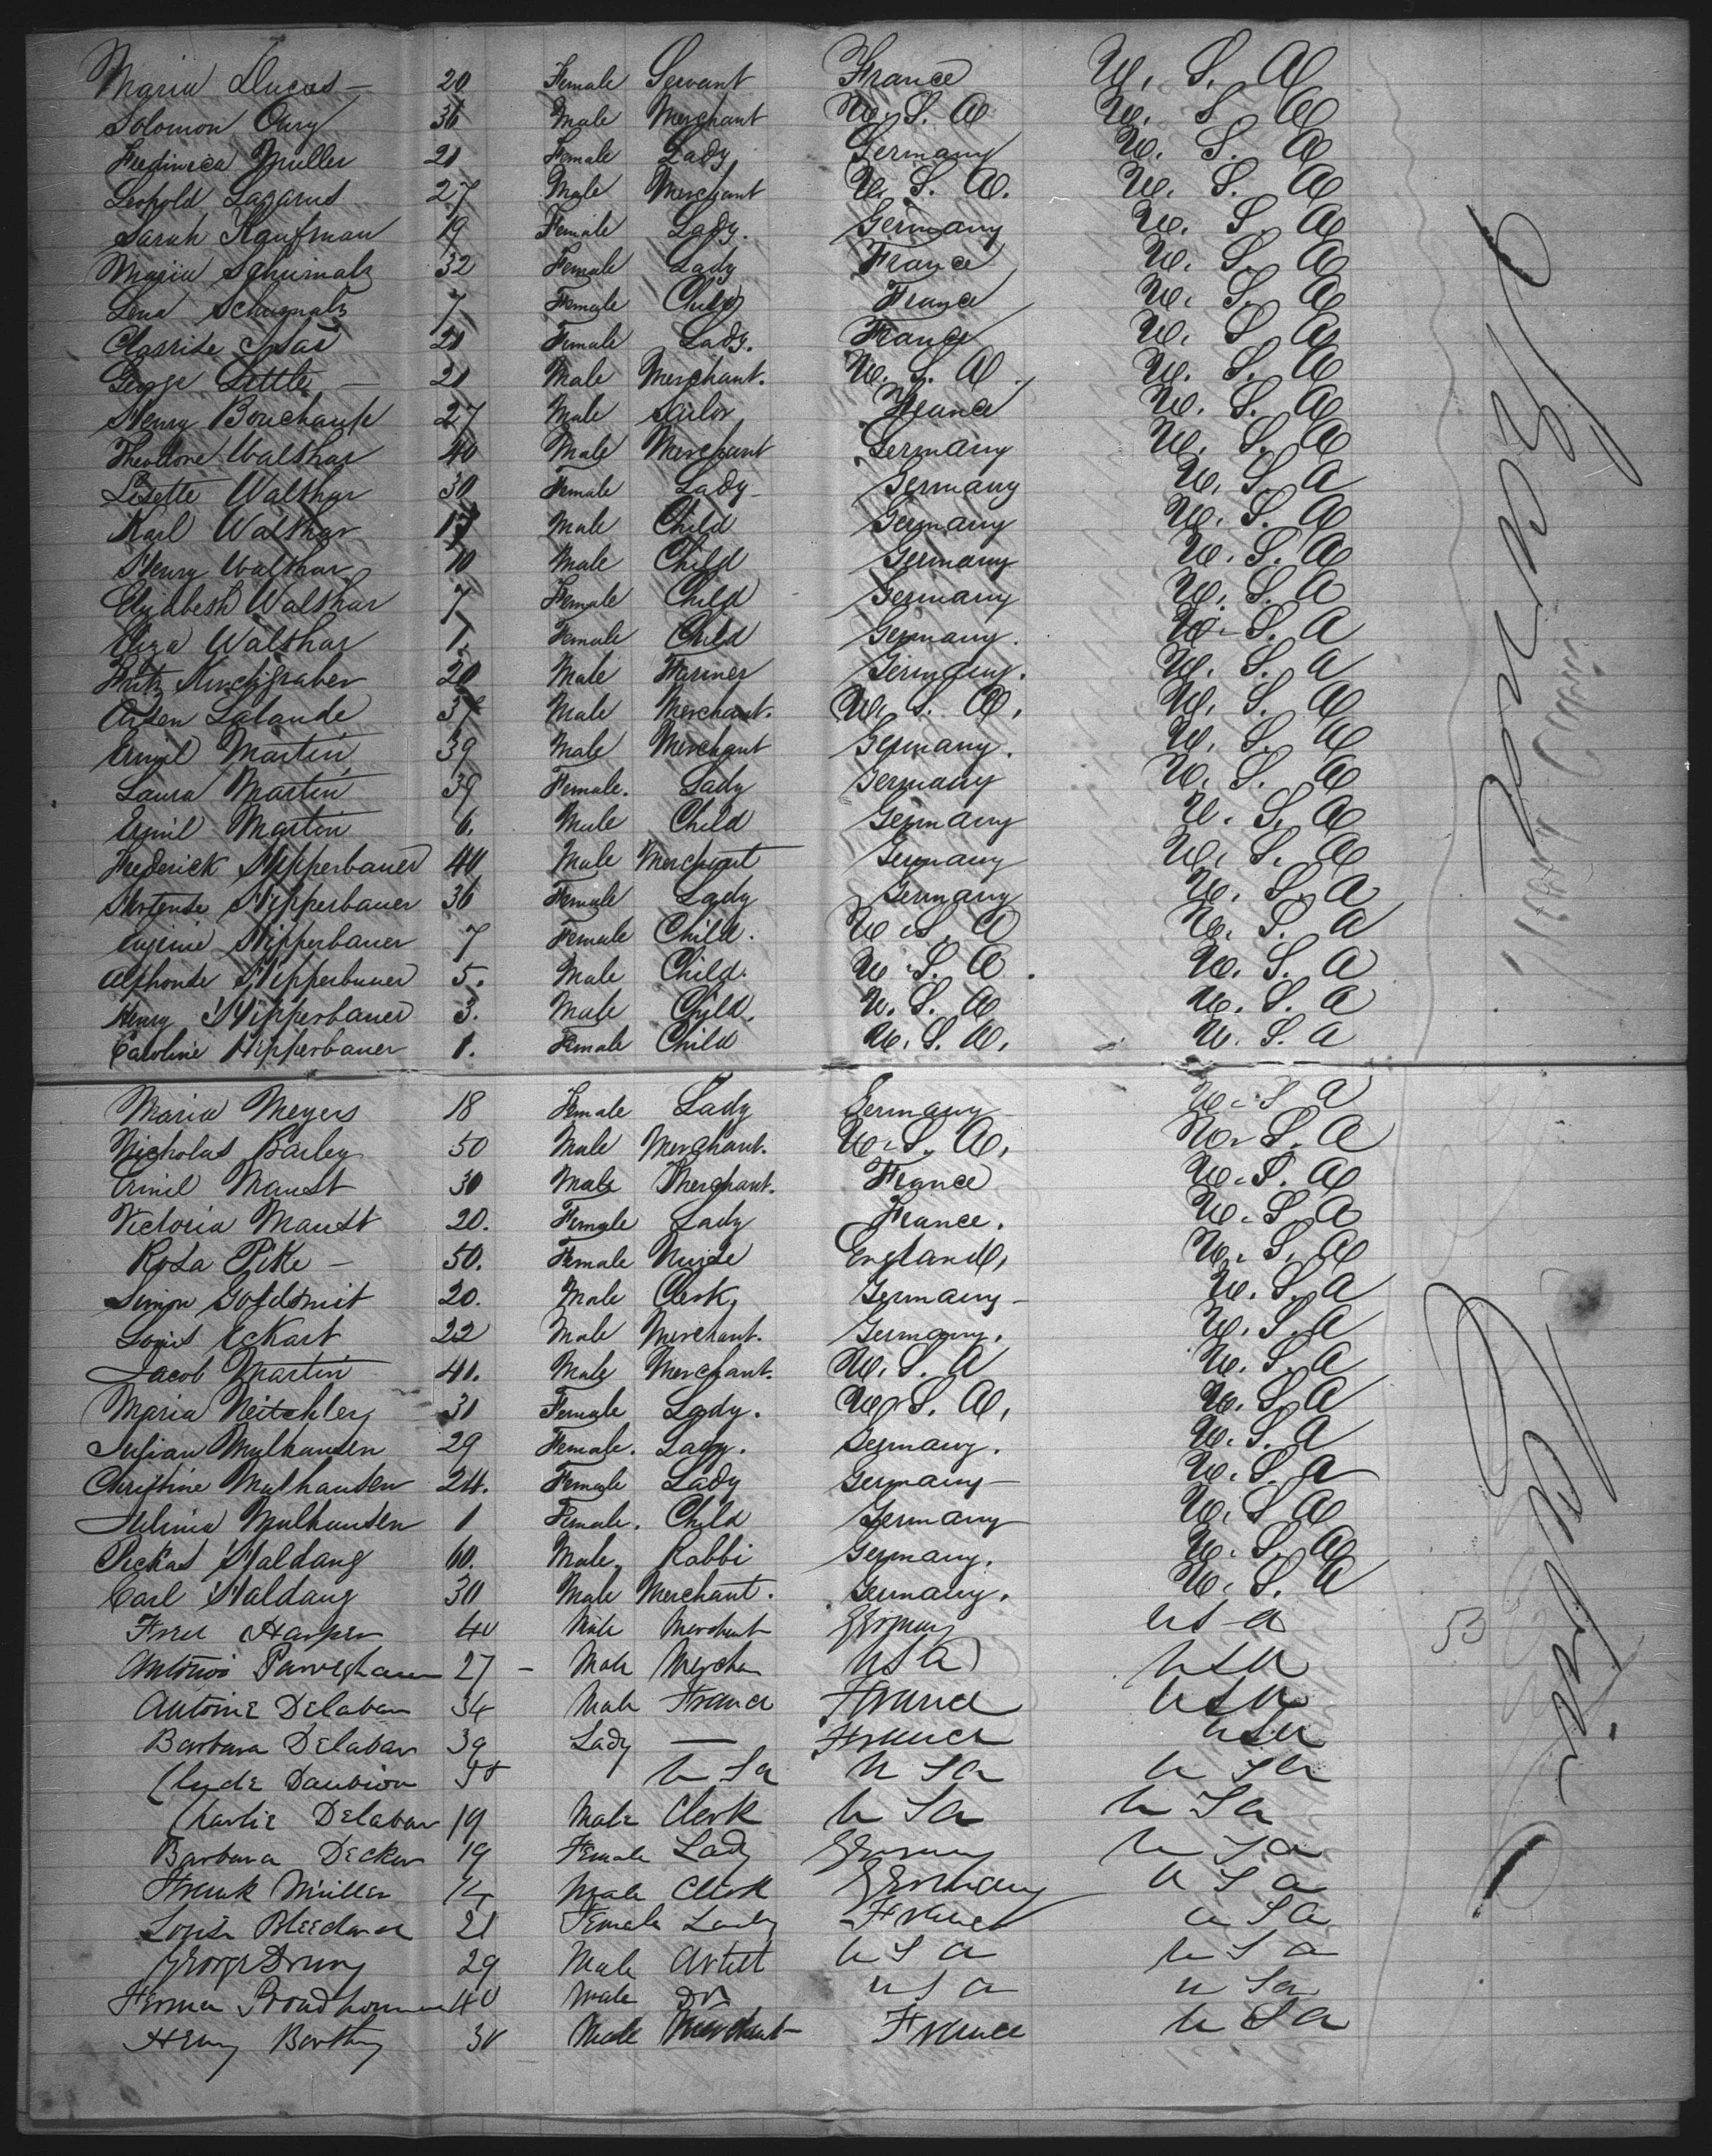 Maria Ducas — 20 Female Servant France U. S. A
Solomon Oury 36 Male Merchant U. S. A U. S A
Fredinrica Muller 21 Female Lady Germany U. S. A
Leopold Lazarus 27 Male Merchant U. S. A. U. S. A
Sarah Kaufman 19 Female Lady. Germany U. S. A
Maria Schumalz 32 Female Lady France U. S. A
Lena Schumalz 7 Female Child France U. S. A
21 Female Lady. France U. S A
George Little — 21 Male Merchant. U. S. A. U. S. A
Henry 27 Male Sailor France U. S. A
Theodore Walthar 40 Male Merchant Germany U. S. A
Lisette Walthar 30 Female Lady Germany U. S A
Karl Walthar Male Child Germany U. S. A
Henry Walthar 10 Male Child Germany U. S. A
Elizabeth Walthar 7 Female Child Germany U. S. A
Eliza Walthar 1. Female Child Germany. U. S. A
Fritz 20 Male Farmer Germany. U. S. A
Lalande 37 Male Merchant. U. S. A. U. S. A
Ermil Martin 39 Male Merchant Germany. U. S. A
Laura Martin 39 Female. Lady Germany U. S. A
Ermil Martin 6. Male Child Germany U. S. A
Frederick Hipperbauer 40 Male Merchant Germany U. S. A
Hortense Hipperbauer 36 Female Lady Germany U. S. A
Eugenie Hipperbauer 7 Female Child. U. S. A U. S. A
Alphonse Hipperbauer 5. Male Child. U. S. A. U. S. A
Henry Hipperbauer 3. Male Child. U. S. A U. S. A
Caroline Hipperbauer 1. Female Child U. S. A. U. S. A
Maria Meyers 18 Female Lady Germany U. S A
Nicholas Barley 50 Male Merchant. U. S. A. U. S. A
Ermil Maust 30 Male Merchant. France U. S. A
Victoria Maust 20. Female Lady France. U. S A
Rosa Pike — 50. Female Nurse England, U. S. A
Simon Goldsmit 20. Male Clerk, Germany — U. S. A
Louis Eckart 22 Male Merchant. Germany. U. S. A
Jacob Martin 41. Male Merchant. U. S. A U. S. A
Maria Neitchley 31 Female Lady. U. S. A. U. S. A
Julian Mulhausen 29 Female. Lady. Germany. U. S. A
Christine Mulhausen 24. Female Lady Germany — U. S. A
Mulhausen 1 Female. Child Germany U. S A
Haldang 60. Male, Rabbi Germany. U. S. A
Carl Haldang 30 Male Merchant. Germany. U. S. A
Fred Harper 40 Male Merchant Germany U S A
53
Antonio 27 — Male Merchan U S A U S A
Antoine Delaban 34 Male France France U S A
Barbara Delabar 39 Lady — France U S A
Clyde U S A U S A U S A
Charlie Delabar 19 Male Clerk U S A U S A
Barbara Decker 19 Female Lady Germany U S A
Frank Müller 14 Male Clerk Germany U S A
Louisa 21 Female Lady France U S A
George Drury 29 Male Artist U S A U S A
40 Male Dr U S A U S A
Henry Barthy 30 Male Merchant France U S A